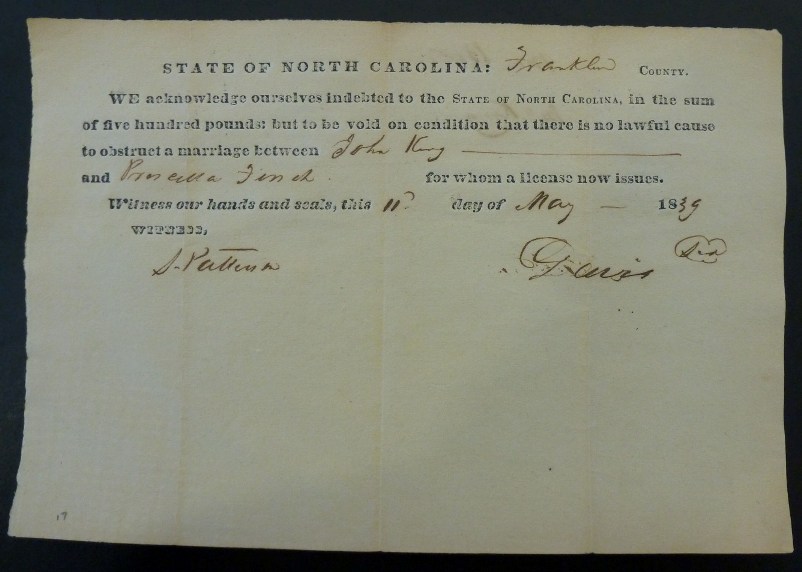 STATE OF NORTH CAROLINA: Franklin COUNTY.
WE acknowledge ourselves indebted to the STATE OF NORTH CAROLINA, in the sum
of five hundred pounds: but to be void on condition that there is no lawful cause
to obstruct a marriage between John King
and Priscilla Finch. for whom a license now issues.
Witness our hands and seals, this 11 day of May 1839
WITNESS,
S. Patterson Davis
17